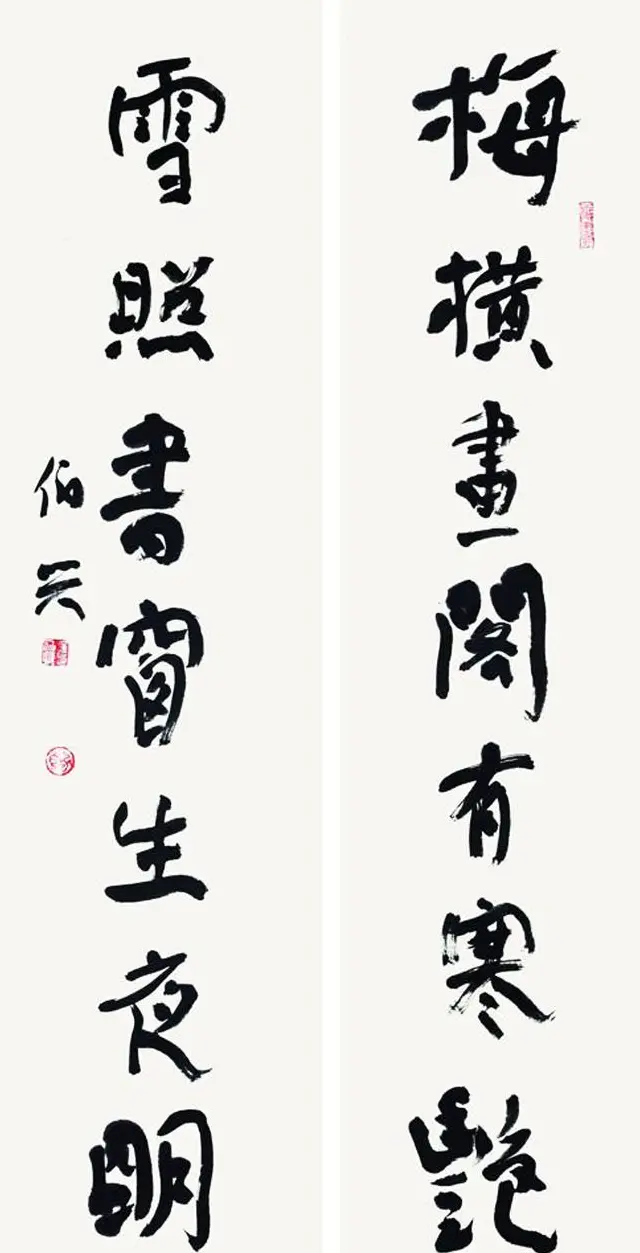 梅橫畫閣有寒艷
雪照書窗生夜明
伯興